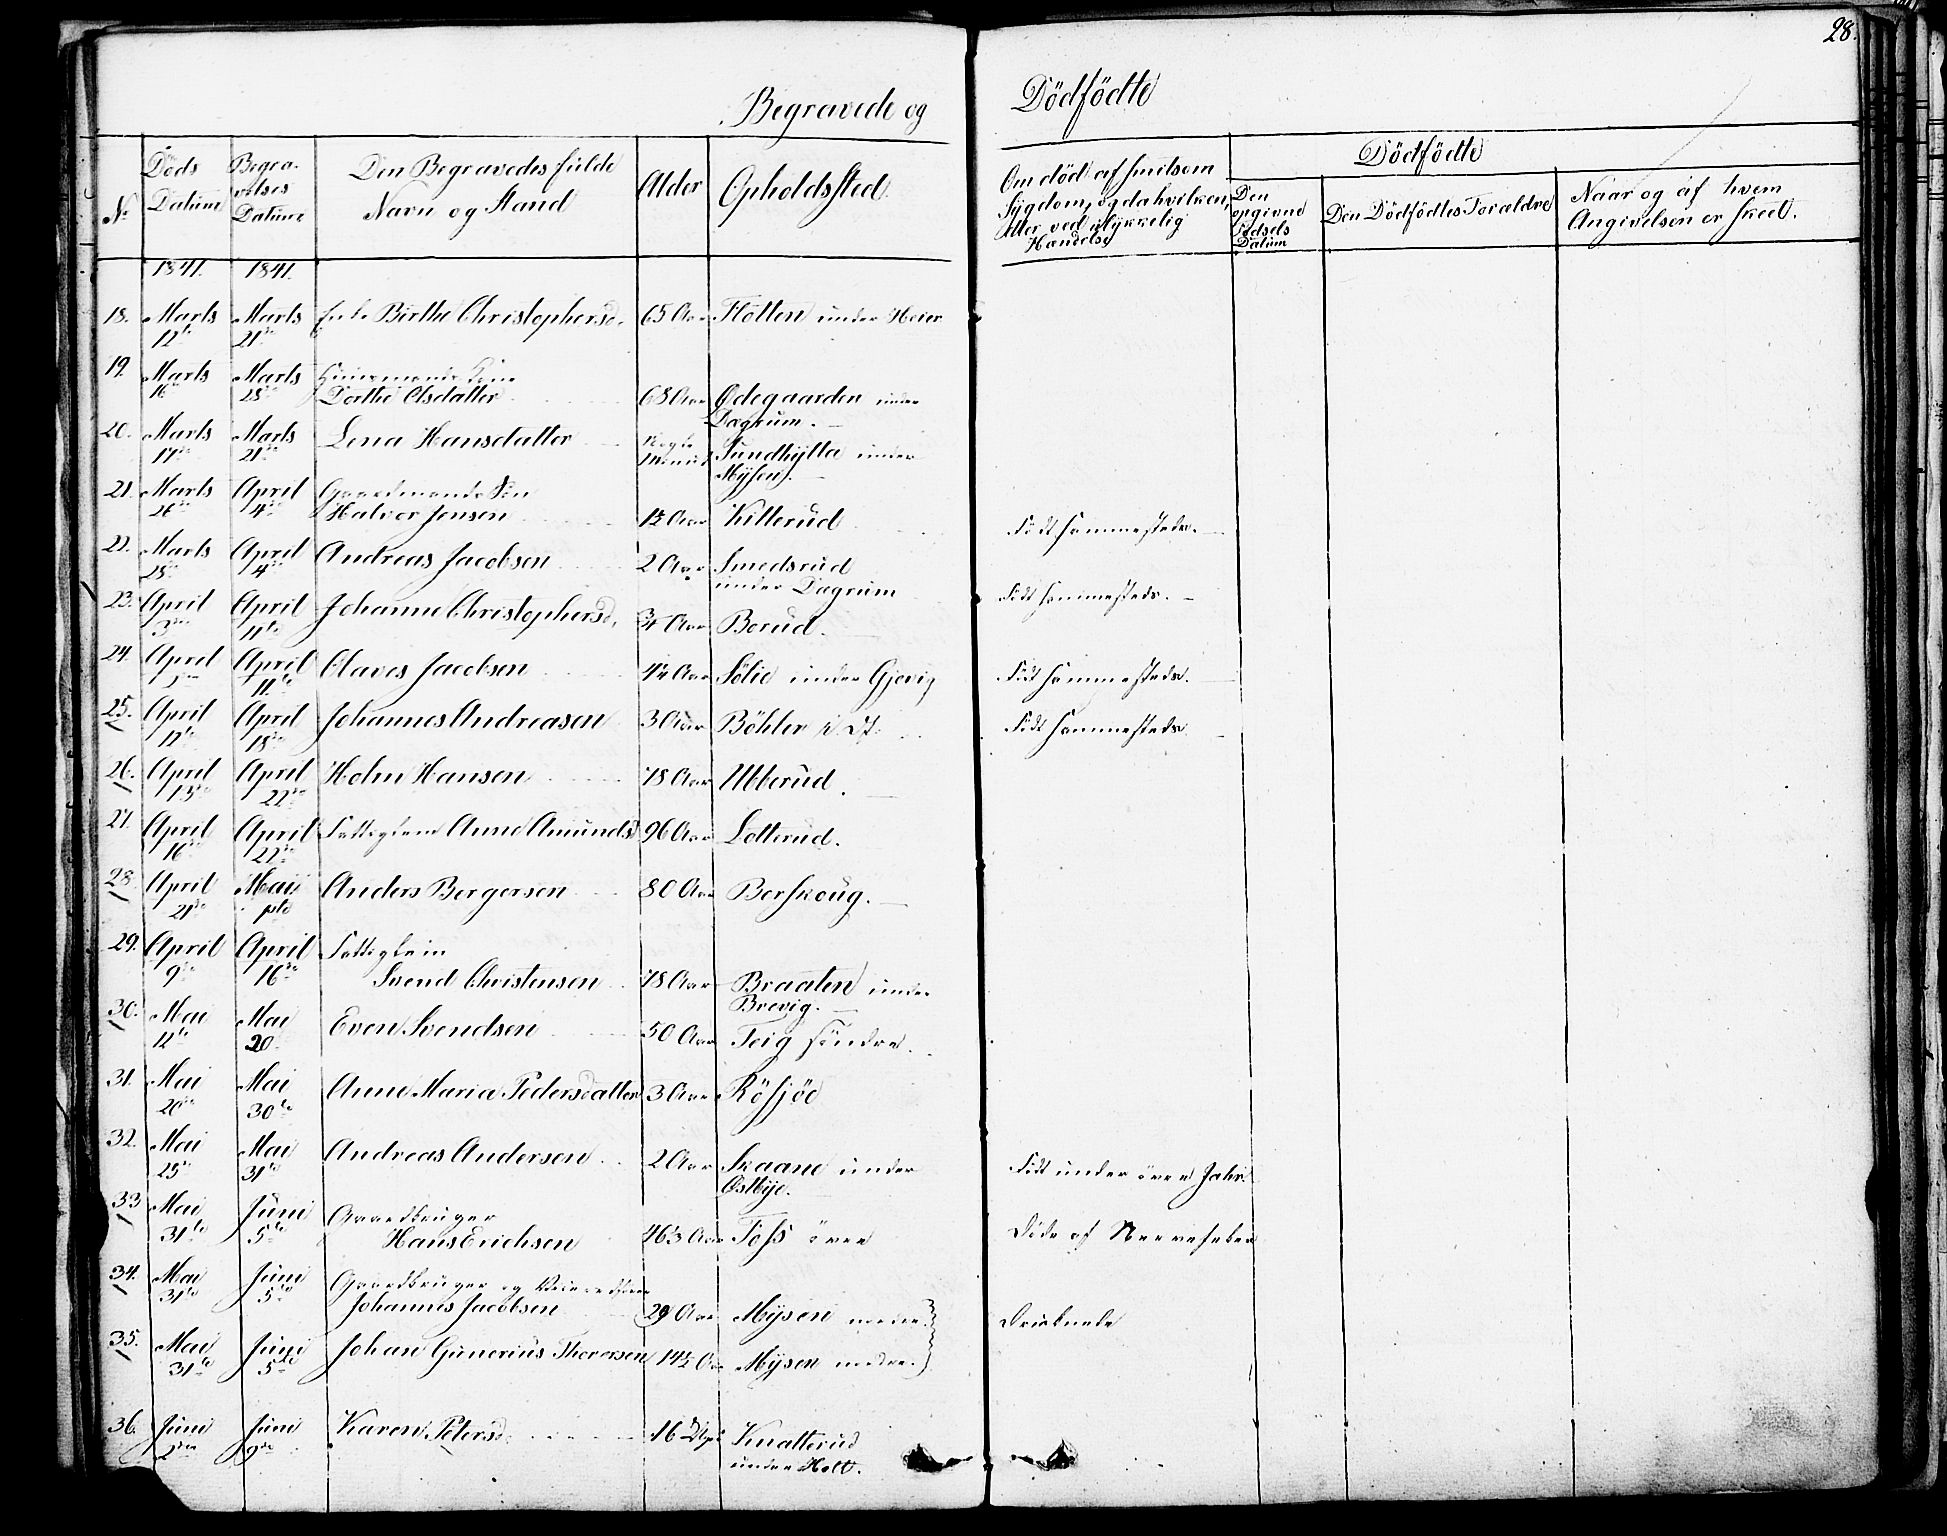 28.
Begravede og Dödfödte
Nr
Döds Datum
Begravelses Datum
Den Begravedes fulde Navn og Stand
Alder
Opholdssted
Om död af smitsom
Sygdom, og da hvilken,
eller ved ulykkelig
Hændelse
Dödfödte
Den opgivne Födsels Datum
Den Dödfödtes Forældre
Naar og af hvem
Angivelsen er skeet.
1841. 1841.
18. Marts 12te Marts 21de Enke Birthe Christophersd. 65 Aar Flötten under Heier
19. Marts 16de Marts 28de Huusmands Kone
Dorthe Olsdatter 68 Aar Ödegaarden under
Dægrum.
20. Marts 17de Marts 21de Lena Hansdatter Nogle Minut Sundhytta under
Mÿsen.
21. Marts 26de April 4de Gaardmands Sön
Halvor Jensen 1½ Aar Kitterud Födt sammesteds.
22. Marts 28de April 4de Andreas Jacobsen 2 Aar Smedsrud
under Dægrum Födt sammesteds.
23. April 3die April 11te Johanne Christophersd. ¾ Aar Borud.
24. April April 11te Olaves Jacobsen 4½ Aar Sölie under Gjevig Födt sammesteds.
25. April 12te April 18de Johannes Andreasen 3 Aar Böhler i Dt. Födt sammesteds
26. April 13de April 22de Holm Hansen 78 Aar Ubberud.
27. April 16de April 22de Fattiglem Anne Amundsd 96 Aar Lotterud.
28. April 21de Mai 1ste Anders Bergersen 80 Aar Borskoug.
29. April 9de April 16de Fattiglem
Svend Christensen 78 Aar Braaten under
Brevig.
30. Mai 12te Mai 20 Even Svendsen 50 Aar Teig söndre.
31. Mai 20de Mai 30te Anne Maria Pedersdatter 3 Aar Rösjöe
32. Mai 25de Mai 31te Andreas Andersen 2 Aar Skaane under
Östbÿe. Födt under övre Jahr.
33 Mai 31te Juni 5te Gaardbruger
Hans Erichsen 46½ Aar Foss övre Döde af Nervefeber
34. Mai 31te Juni 5te Gaardbruger og
Johannes Jacobsen 29 Aar Mÿsen nedre. Druknede
35. Mai 31te Juni 5te Johan Gunerius Thoresen 14½ Aar Mÿsen nedre.
36. Juni 2den Juni 9de Karen Petersd. 16 Knatterud
under Holt.